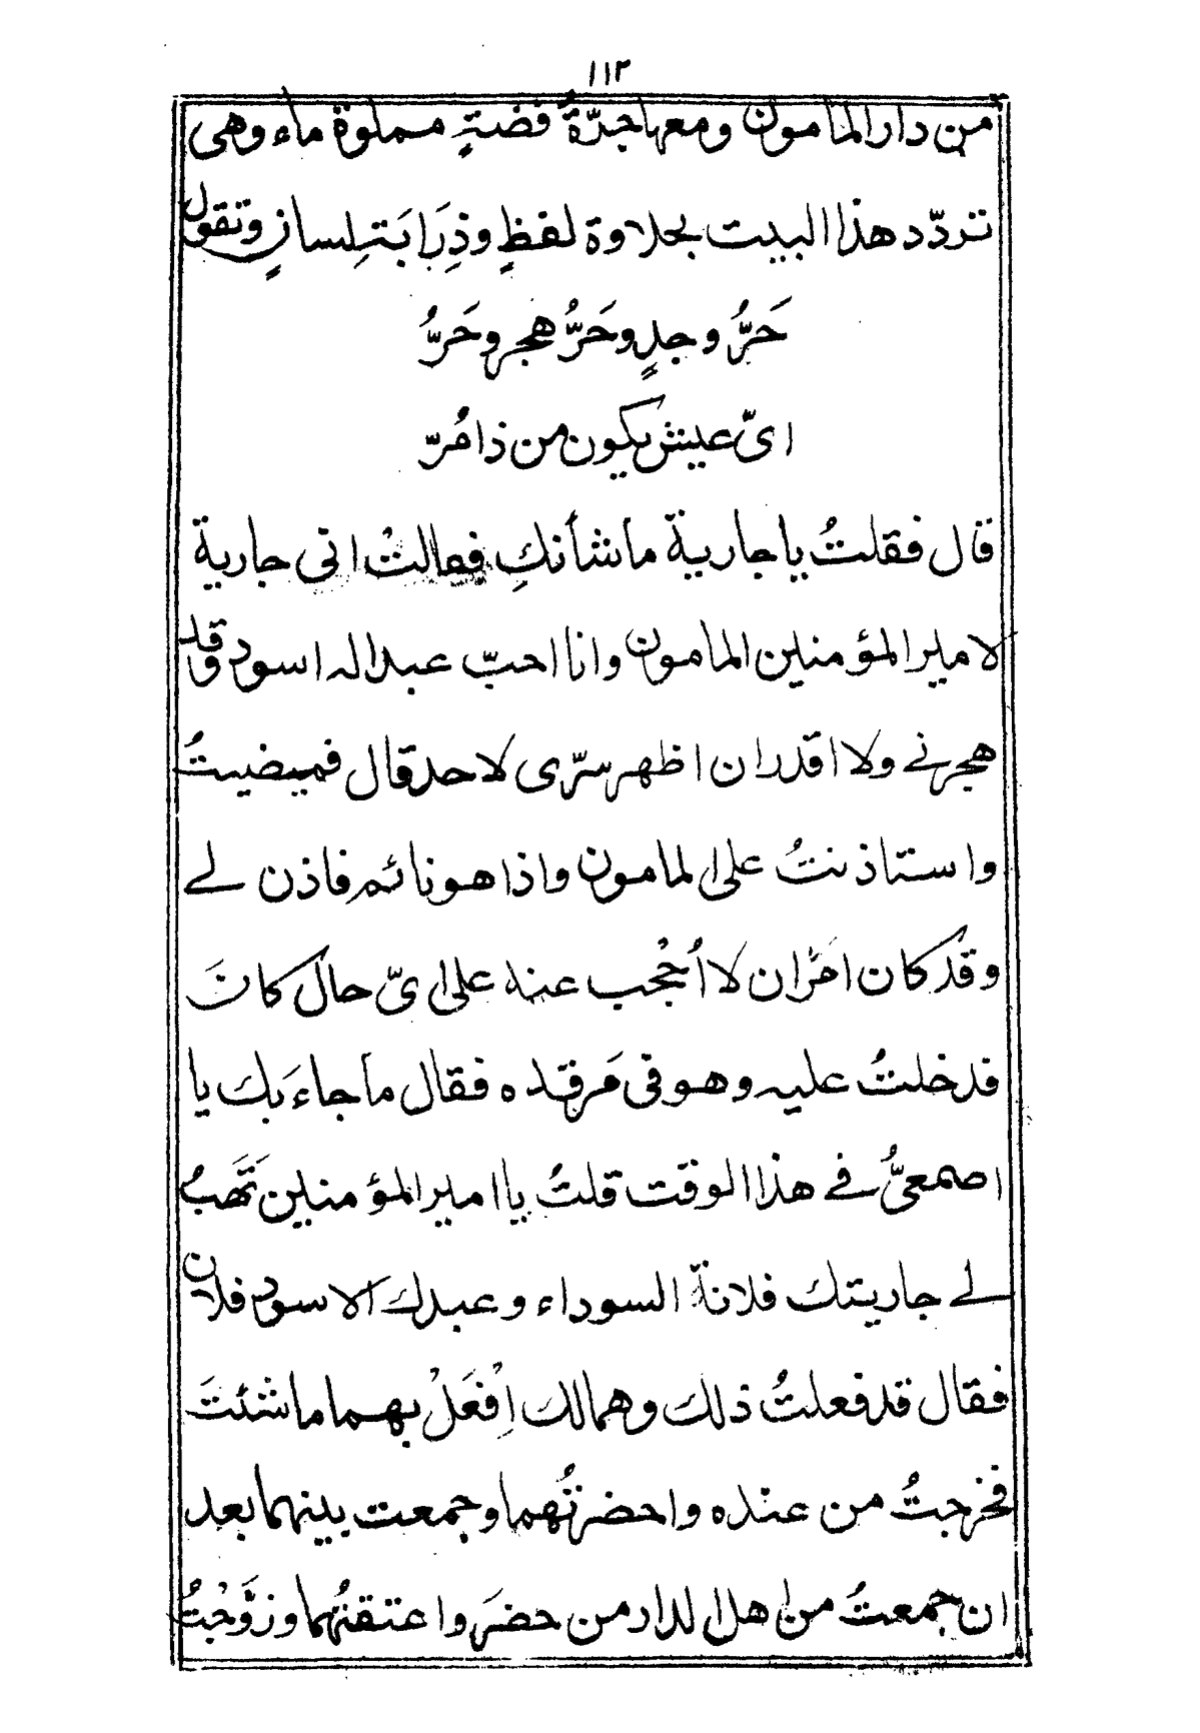 ١١٢
من دار المامون ومعها جرّةُ فضةٍ مملوة ماء وهى
تردّد هذا البيت بحلاوة لفظٍ وذِرَابَتهِ لِسانٍ وتقول
حَرُّ وجدٍ وحَرُّ هجر وحَرُّ
اىّ عيش يكون من ذا مُرّ
قال فقلتُ يا جارية ما شأنكِ فقالتْ انى جارية
لامير المؤمنين المامون وانا احبّ عبدا له اسود وقد
هجرنے ولا اقدر ان اظهر سرّى لاحد قال فمضيتُ
واستاذنتُ على المامون واذا هو نائم فاذن لے
وقد كان امَرَ ان لا اُحْجُب عنه على اىّ حال كانَ
فدخلتُ عليه وهو فى مَرقده فقال ما جاءَ بك يا
اصمعىُّ فے هذا الوقت قلتُ يا امير المؤمنين تَهَبُ
لے جاريتك فلانة السوداء وعبدك الاسود فلان
فقال قد فعلتُ ذلك وهما لك اِفْعَلْ بهما ما شئتَ
فخرجتُ من عنده واحضرتُهما وجمعت بينهما بعد
ان جمعتُ من اهل الدار من حضرَ واعتقتُهما وزوَّجْتُ